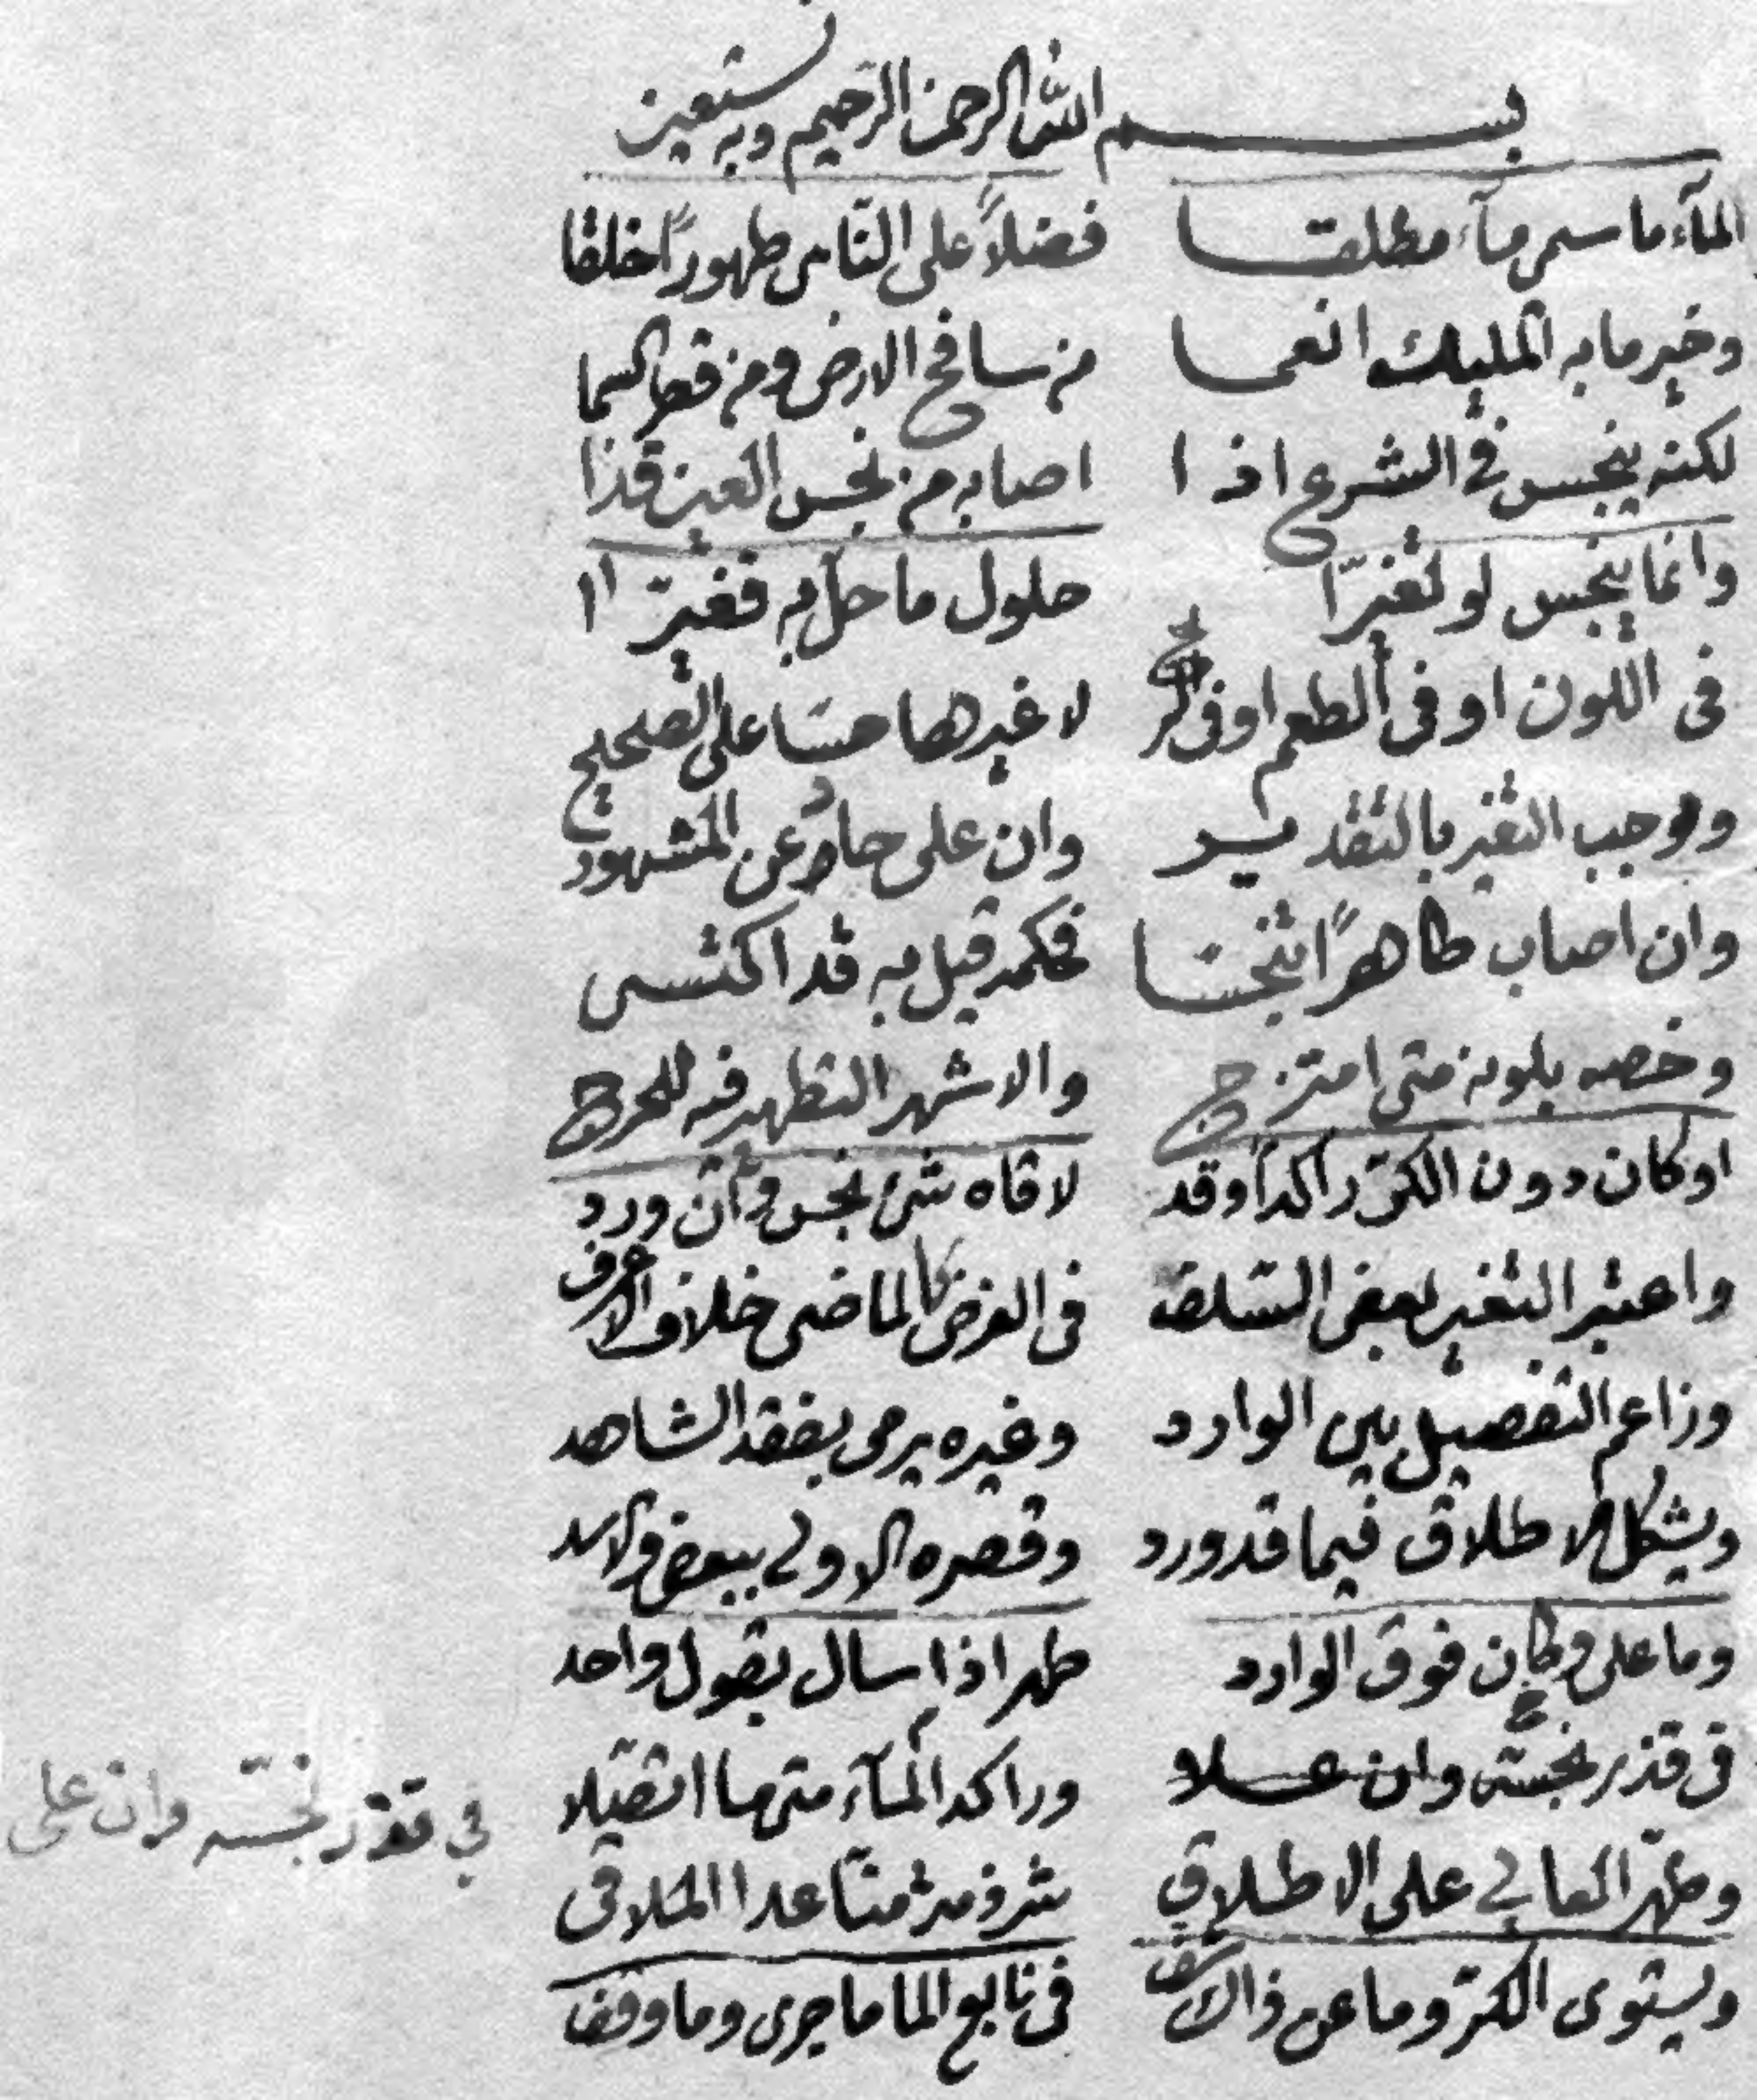 بسم الله الرحمن الرحيم وبه نستعين
الماء ما سمى مآء مطلقا فضلاً على النّاس طهوراً خلقا
وخير ما به المليك انعما من سافح الارض ومن قطر السما
لكنه ينجس في الشرع اذا اصابه من نجس العين قذا
وانما ينجس لو تغيّرا حلول ما حلّ به فغيّرا
فى اللون او فى الطعم او فى الريح لا غيرها حسّا على الصحيح
وموجب التغير بالتقدير وان على حاد عن المشهور
وان اصاب طاهراً تنجسّا فحكمه قيل به قد اكتسى
وخصه بلونه متى امتزج والاشهر التطهير فيه للحرج
او كان دون الكرّ راكداً وقد لاقاه شئ نجس وان ورد
واعتبر التغير بعض السّلف فى الفرض كالماضى خلاف الاعرف
وزاعم التفصيل بين الوارد وغيره يرمى بفقد الشاهد
ويشكل الاطلاق فيما قد ورد وقصره الاولى ببعض
وما على وكان فوق الوارد طهر اذا سال بقول واحد
فى قذر نجسّه وان علا وراكد المآء متى ما اتصلا
في تقذر نجسّه وان على
وطهّر العالي على الاطلاق عدا الملاقى
ويستوى الكرّ وما عن ذاك شف فى نابع الما ما جرى وما وقف